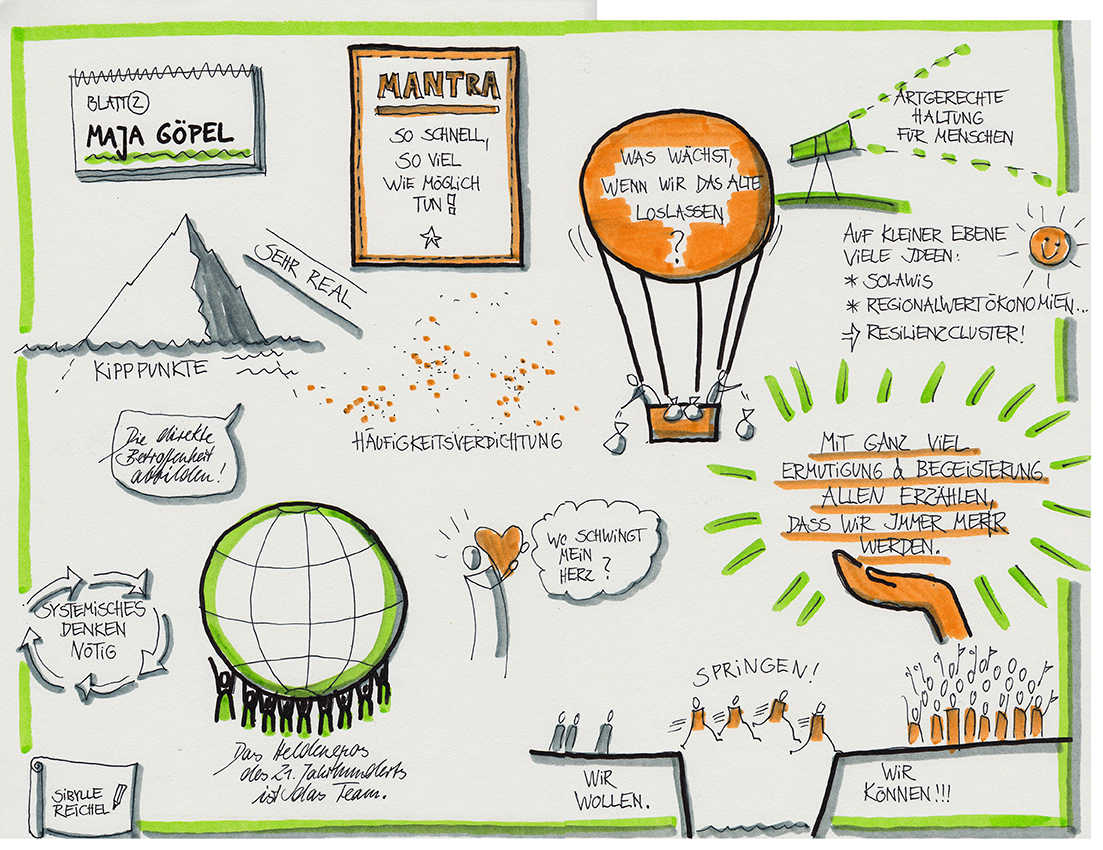 BLATT 2
MAJA GÖPEL
MANTRA
SO SCHNELL,
SO VIEL
WIE MÖGLICH
TUN!
WAS WÄCHST,
WENN WIR DAS ALTE
LOSLASSEN
?
ARTGERECHTE
HALTUNG
FÜR MENSCHEN
AUF KLEINER EBENE
VIELE IDEEN:
* SOLAWIS
* REGIONALWERTÖKONOMIEN...
⇒ RESILIENZCLUSTER!
SEHR REAL
KIPPPUNKTE
HÄUFIGKEITSVERDICHTUNG
Die direkte
Betroffenheit
abbilden!
MIT GANZ VIEL
ERMUTIGUNG & BEGEISTERUNG
ALLEN ERZÄHLEN,
DASS WIR IMMER MEHR
WERDEN.
WO SCHWINGT
MEIN
HERZ?
SYSTEMISCHES
DENKEN
NÖTIG
Das Heldenepos
des 21. Jahrhunderts
ist das Team.
SPRINGEN!
WIR
WOLLEN.
WIR
KÖNNEN!!!
SIBYLLE
REICHEL